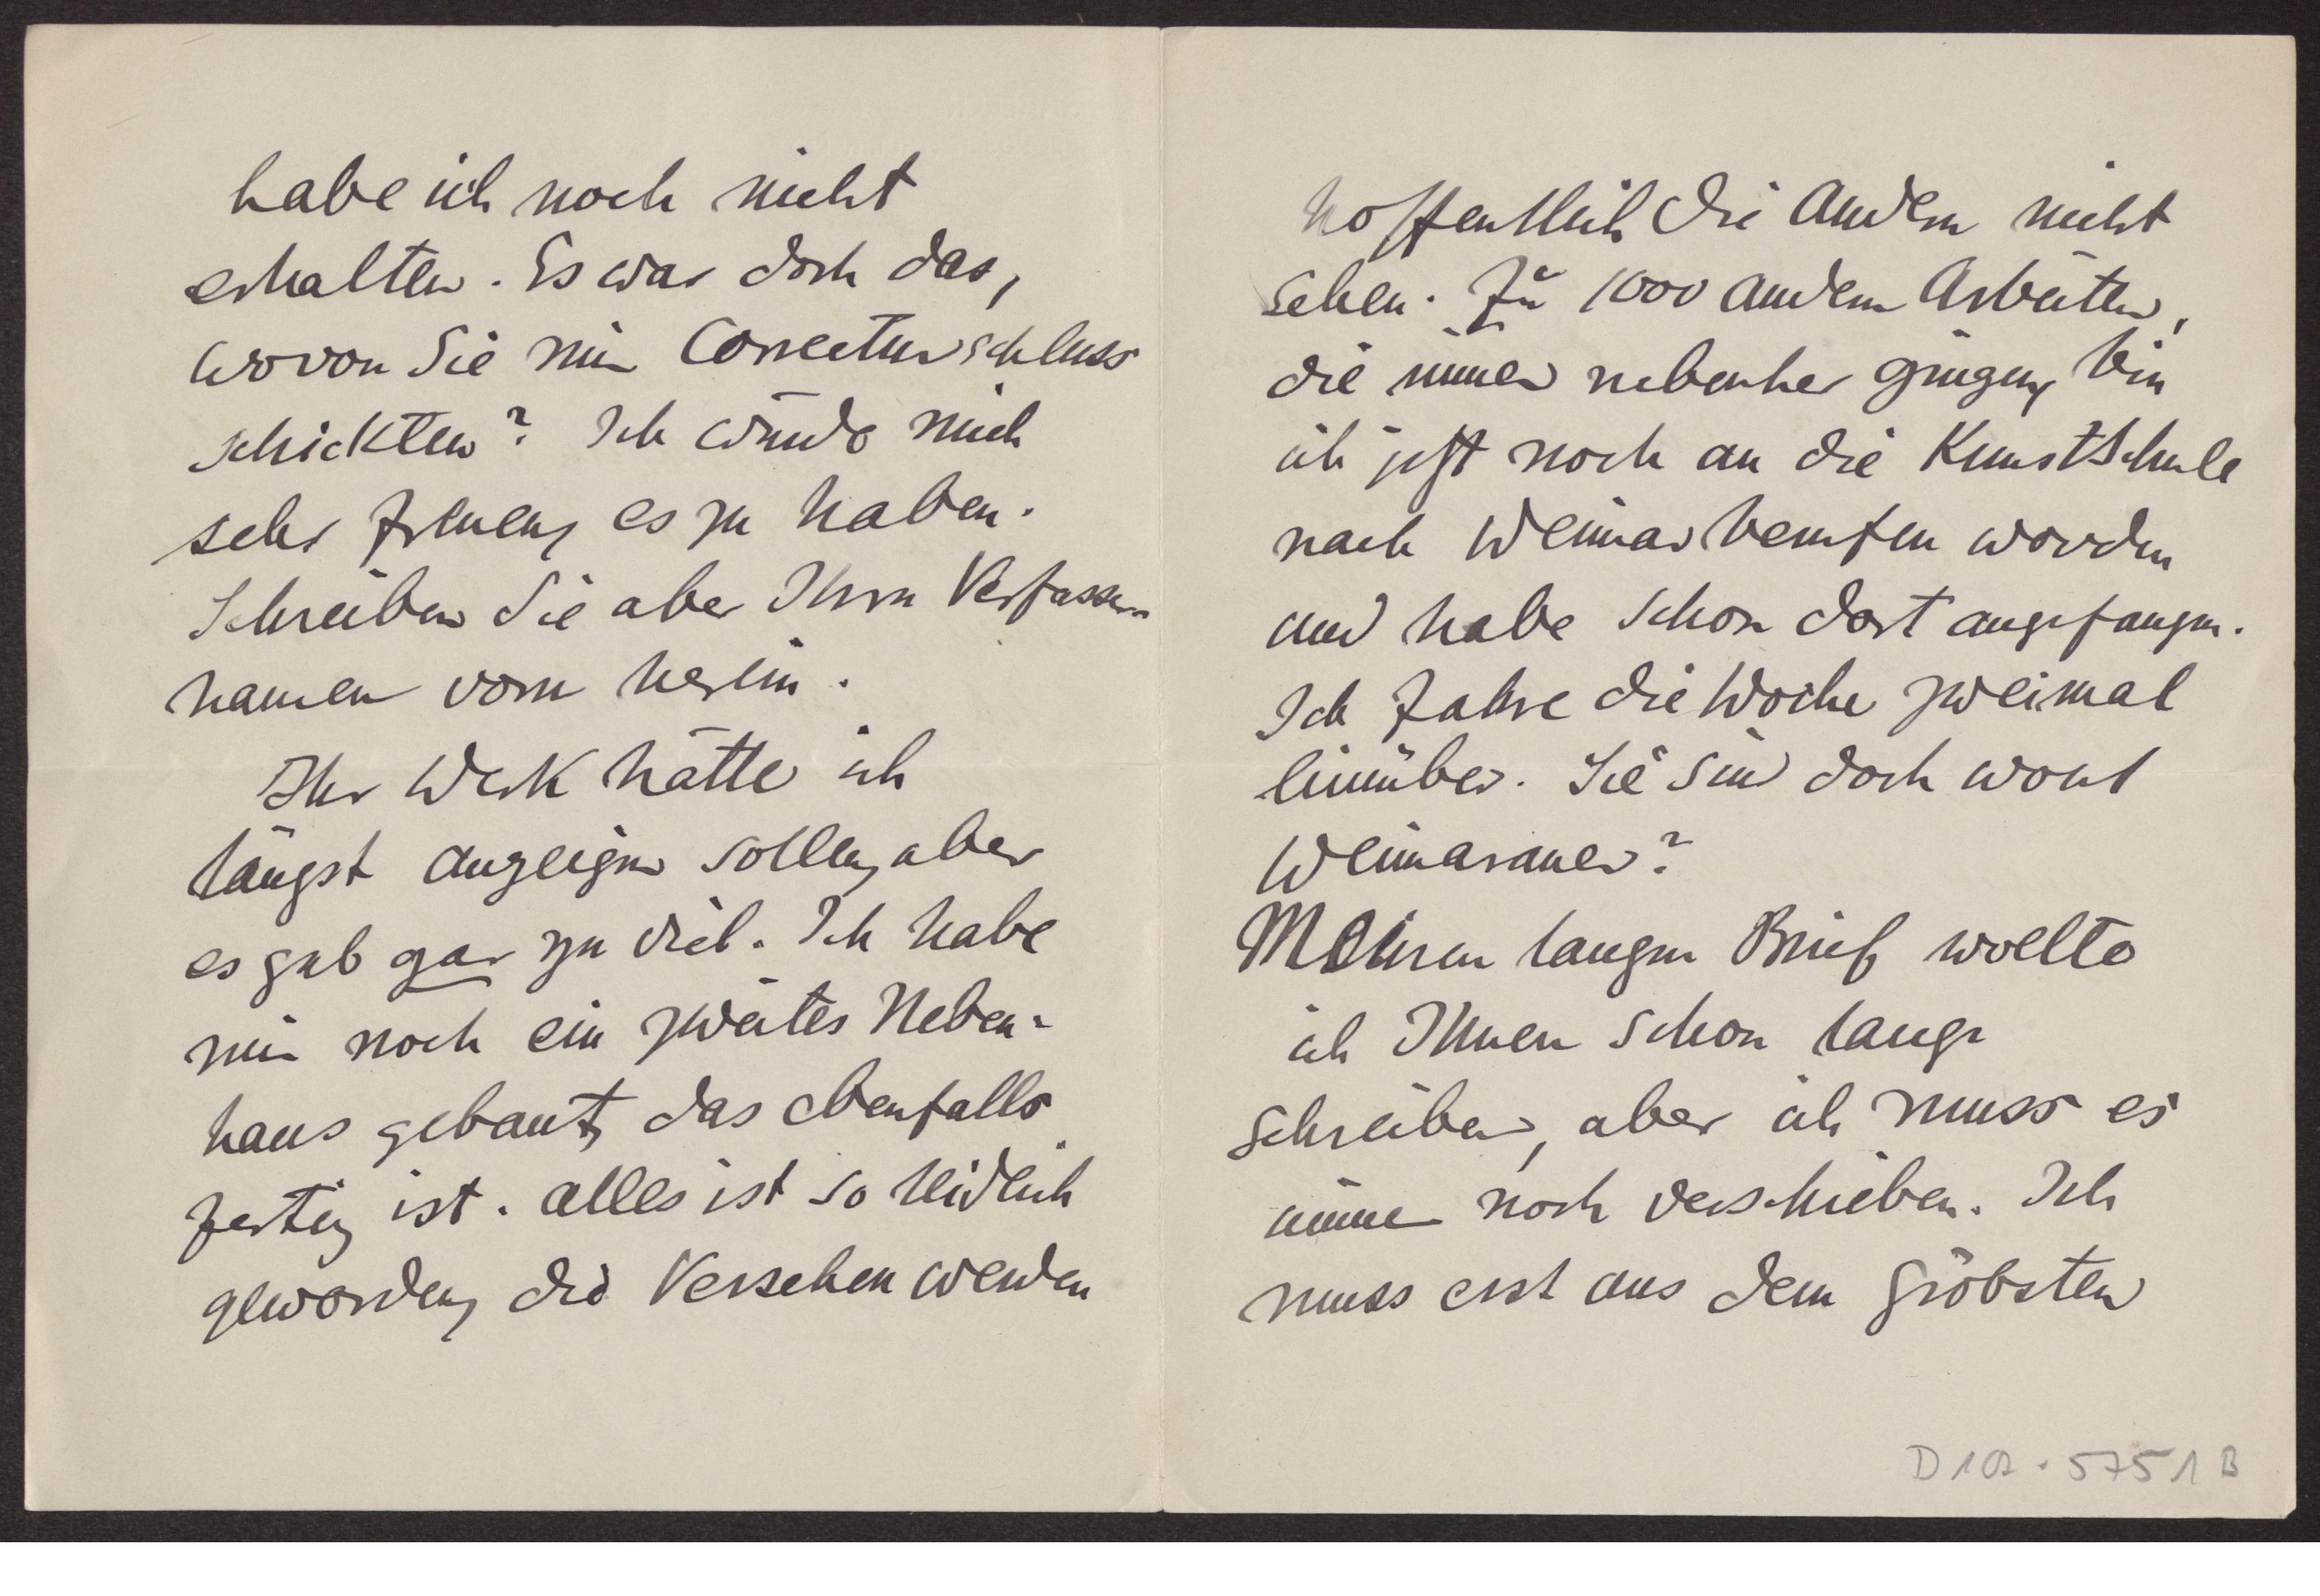 habe ich noch nicht
erhalten. Es war doch das,
wovon Sie mir Correcturschluss
schickten? Ich würde mich
sehr freuen, es zu haben.
Schreiben Sie aber Ihren Verfasser-
namen vorn herein.
Ihr Werk hätte ich
längst anzeigen sollen, aber
es gab gar zu viel. Ich habe
mir noch ein zweites Neben-
haus gebaut, das ebenfalls
fertig ist. Alles ist so leidlich
geworden, die Versehen werden
hoffentlich die Andern nicht
sehen. Zu 1000 andern Arbeiten,
die immer nebenher gingen, bin
ich jetzt noch an die Kunstschule
nach Weimar berufen worden
und habe schon dort angefangen.
Ich fahre die Woche zweimal
hinüber. Sie sind doch wohl
Weimaraner?
Meinen langen Brief wollte
ich Ihnen schon lange
schreiben, aber ich muss es
immer noch verschieben. Ich
muss erst aus dem Gröbsten
5751 B